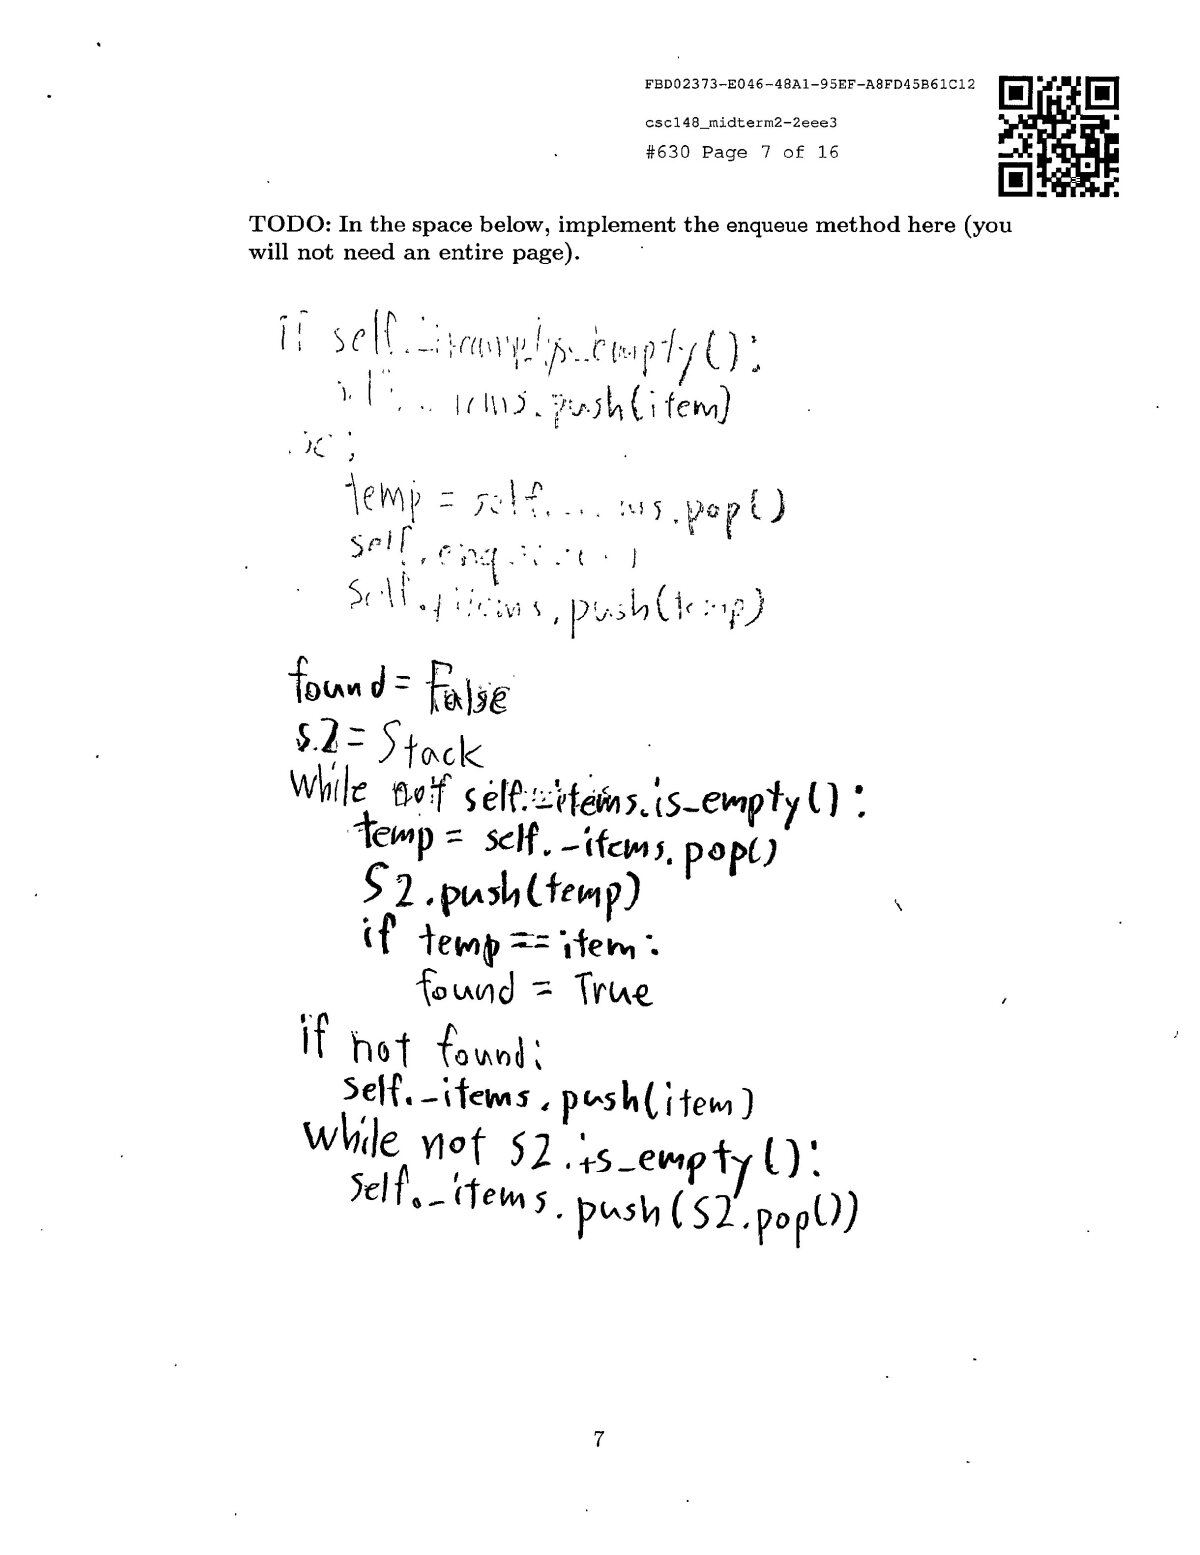 FBD02373-E046-48A1-95EF-A8FD45B61C12
csc148_midterm2-2eee3
#630 Page 7 of 16
TODO: In the space below, implement the enqueue method here (you
will not need an entire page).
if self. _empty():
.push(item)
temp = self. .pop()
self.
self._items.push(temp)
found = False
S2 = Stack
while not self._items.is_empty():
temp = self._items.pop()
S2.push(temp)
if temp == item:
found = True
if not found:
self._items.push(item)
while not S2.is_empty():
self._items.push(S2.pop())
7